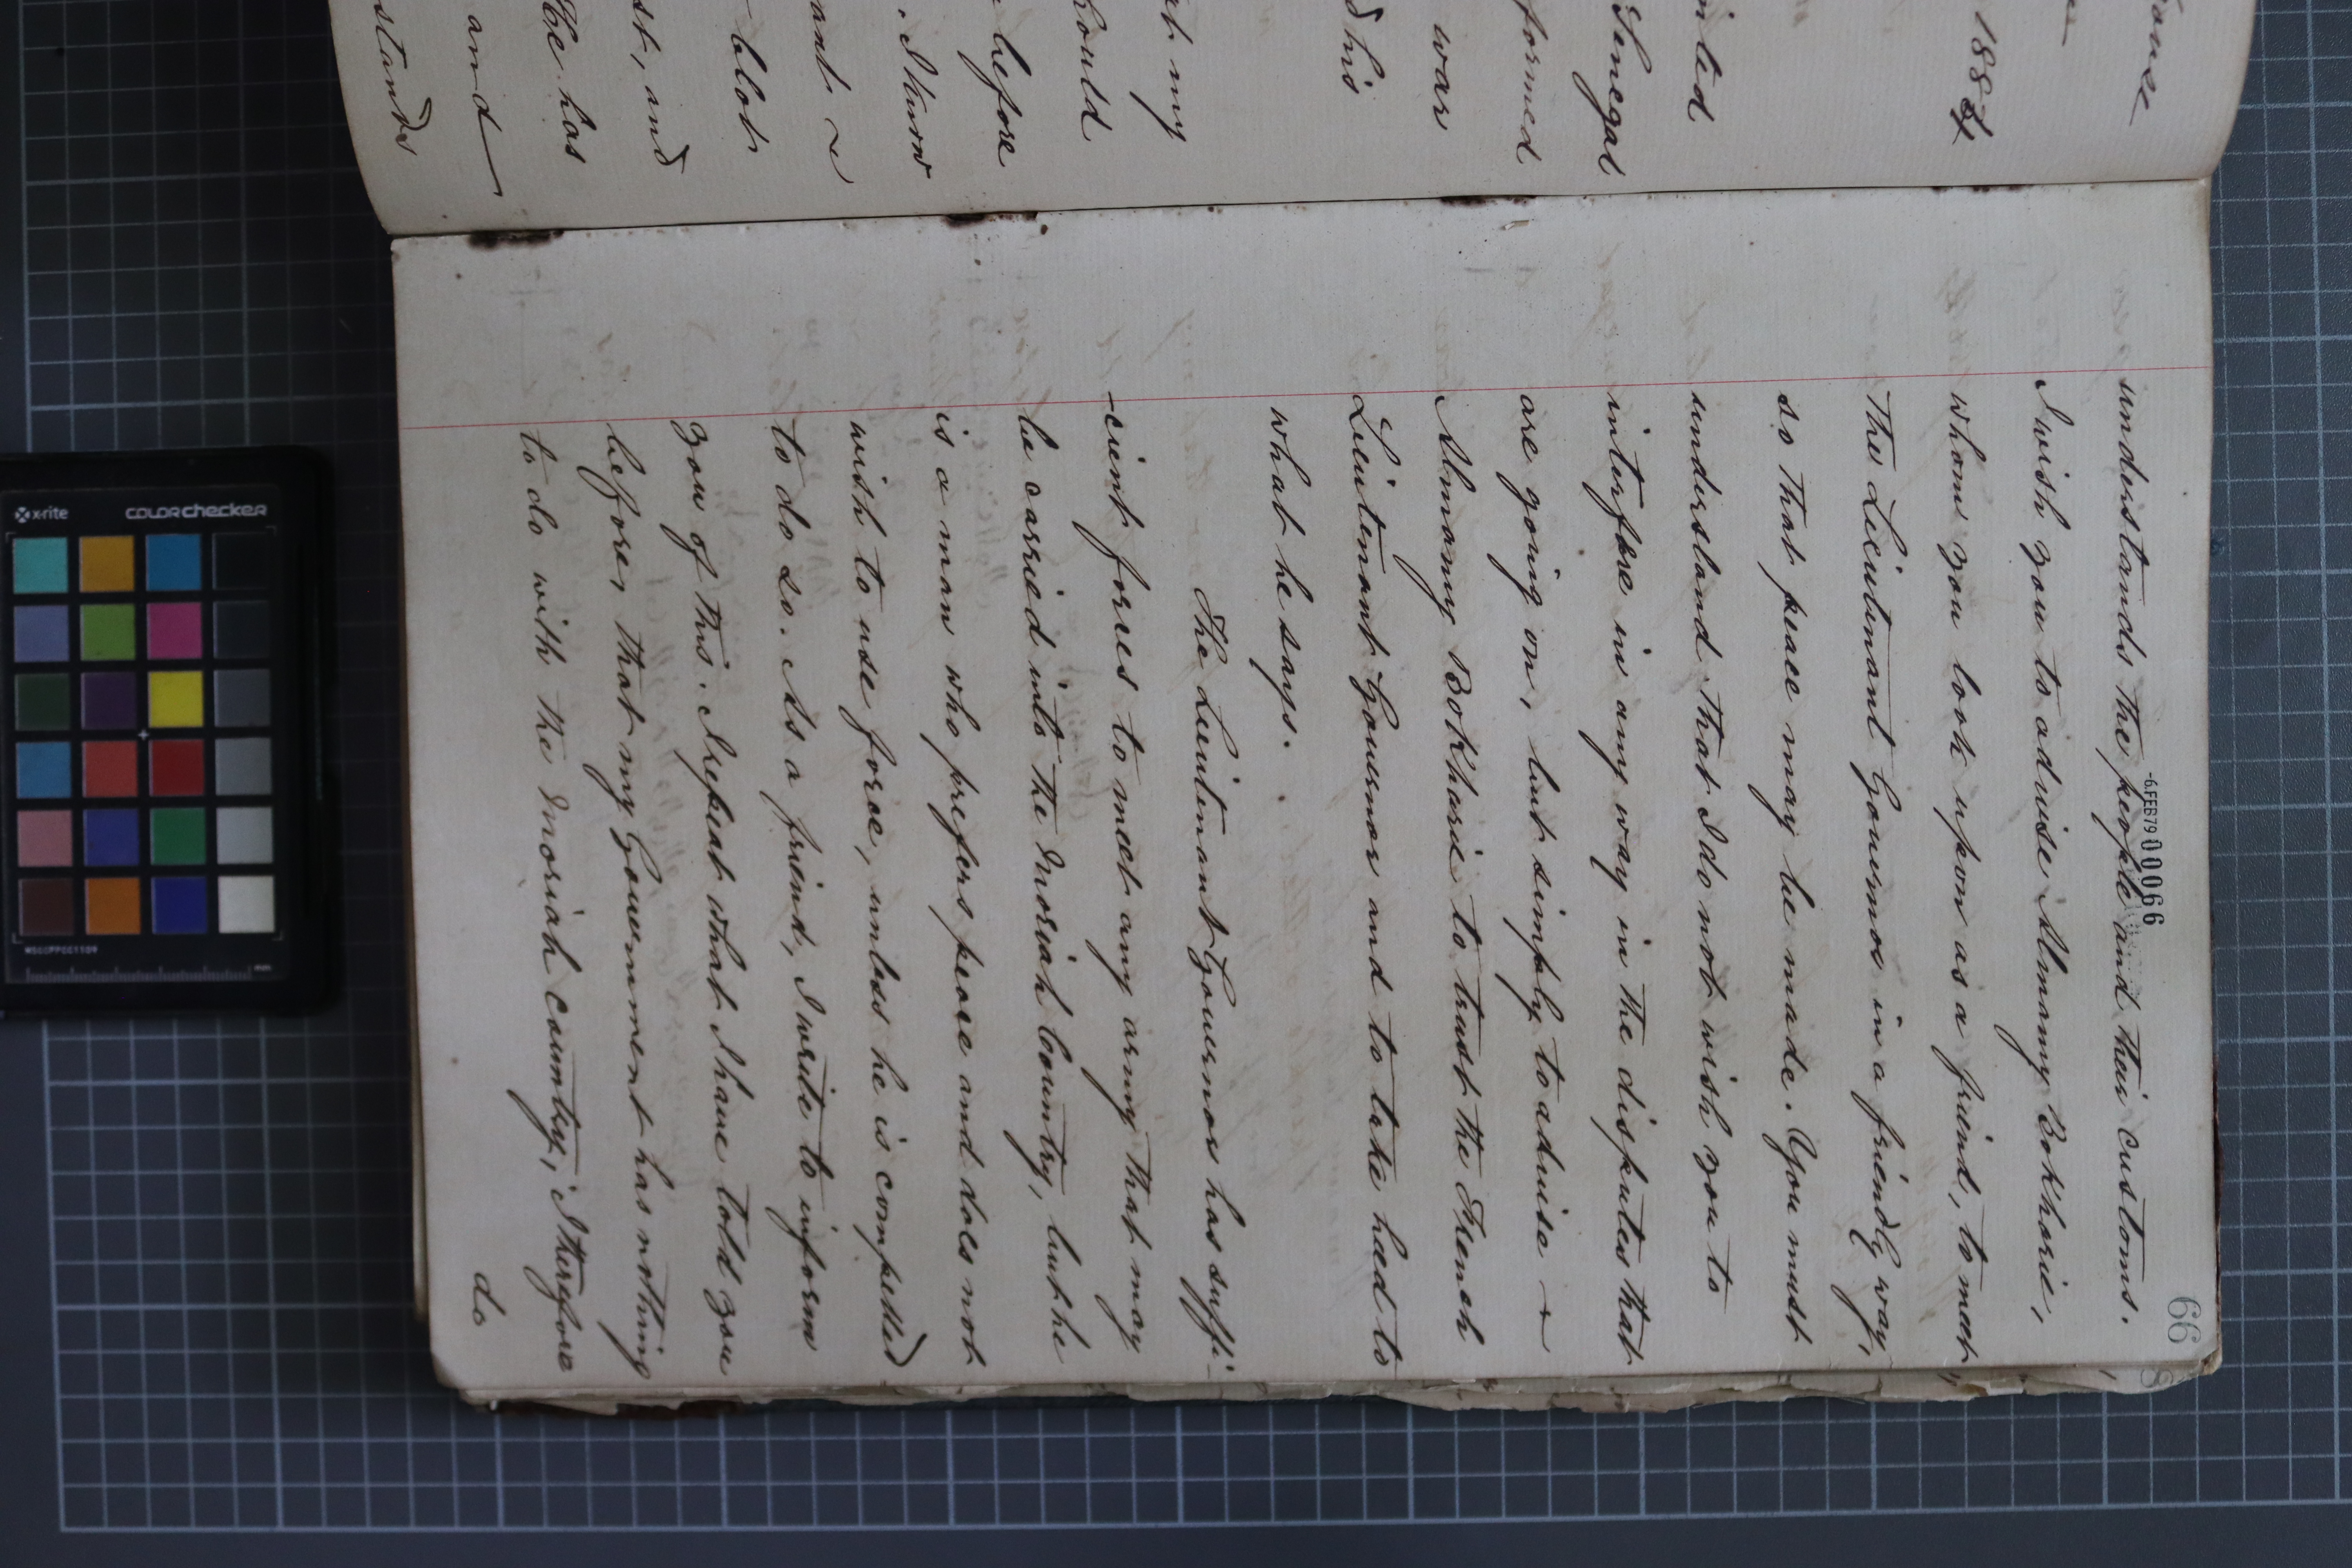 ouse
1884
inted
Senegal
formed
war
d his
at my
hould
before
. I know
ant ~
blot
st, and
He has
and
stands
-6.FEB79 00066
66
understands the people and their customs.
I wish you to advise Almamy Bokharie,
whom you look upon as a friend, to meet
the Lieutenant Governor in a friendly way,
so that peace may be made. You must
understand that I do not wish you to
interfere in any way in the disputes that
are going on, but simply to advise ~
Almamy Bokharie to trust the French
Lieutenant Governor and to take heed to
what he says.
The Lieutenant Governor has suffi-
-cient forces to meet any army that may
be carried into the Moriah Country, but he
is a man who prefers peace and does not
wish to use force, unless he is compelled
to do so. As a friend, I write to inform
you of this. I repeat what I have told you
before, that my Government has nothing
to do with the Moriah country; I therefore
do
x-rite
colorchecker
MSCCPPCC1109
mm